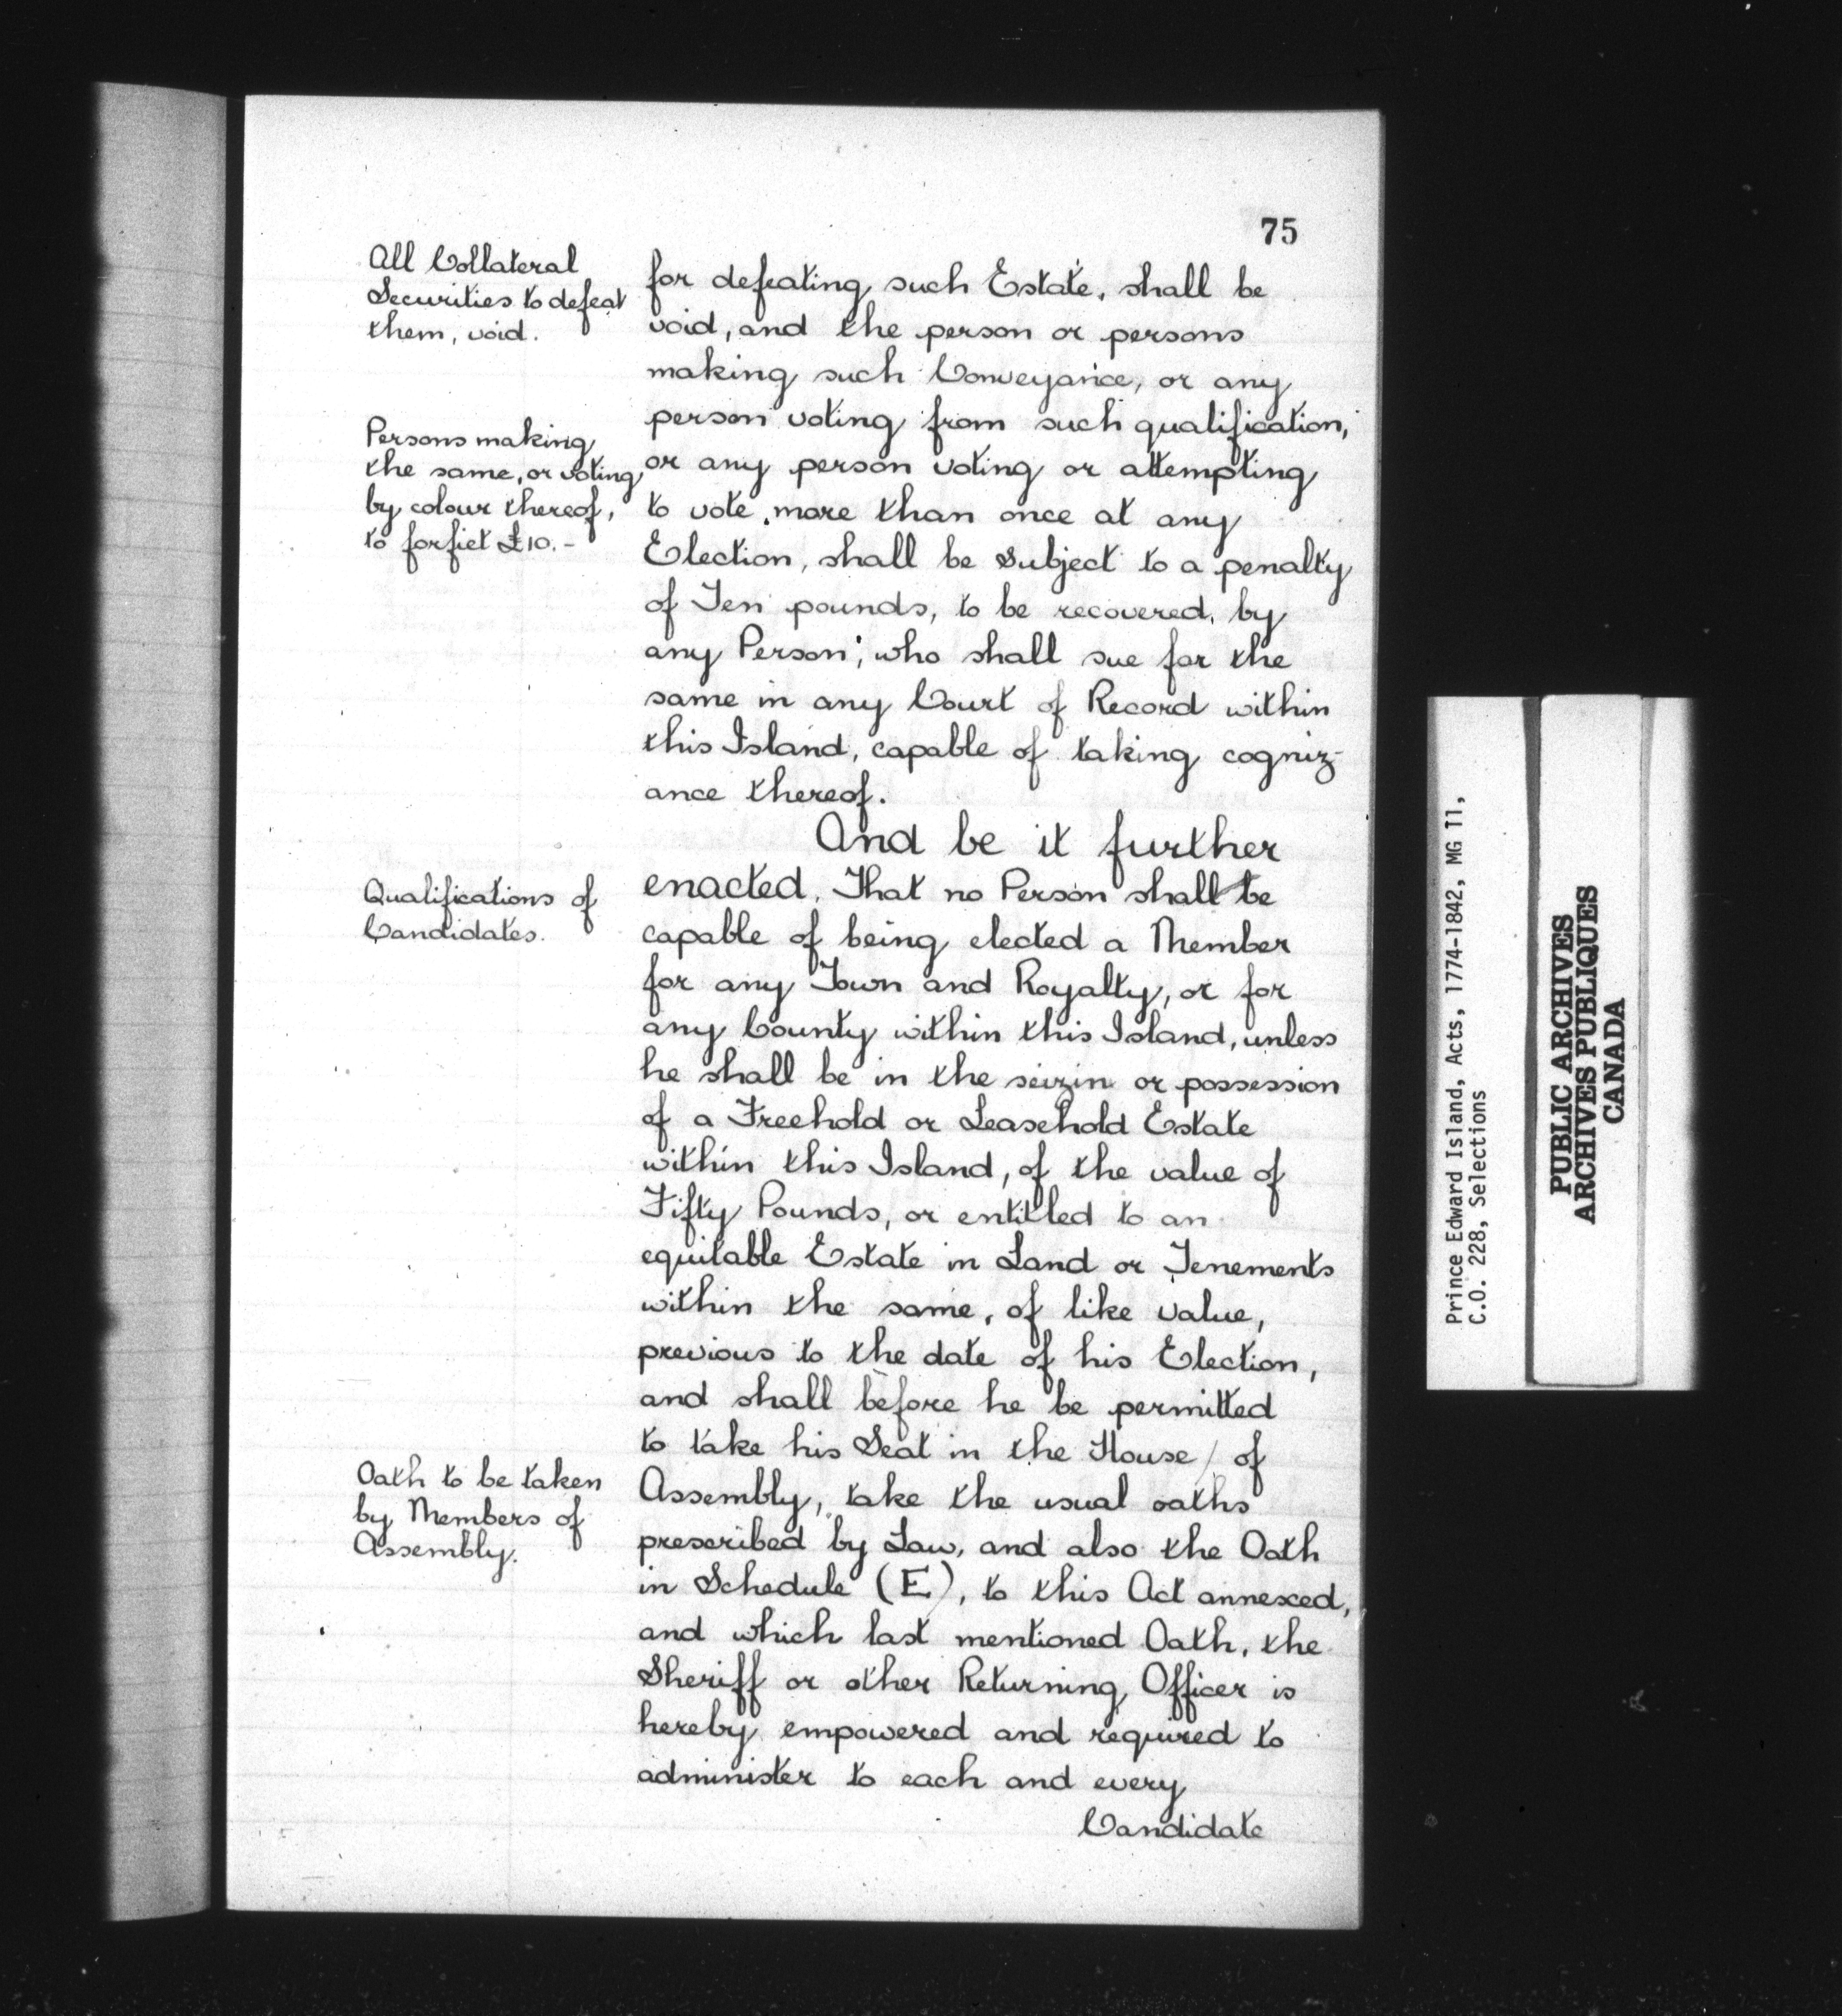 75
All Collateral
Securities to defeat
them, void.
for defeating such Estate, shall be
void, and the person or persons
making such Conveyance, or any
person voting from such qualification,
Persons making
the same, or voting
by colour thereof,
to forfiet £10.-
or any person voting or attempting
to vote more than once at any
Election, shall be Subject to a penalty
of Ten pounds, to be recovered, by
any Person, who shall sue for the
same in any Court of Record within
this Island, capable of taking cogniz-
ance thereof.
And be it further
Qualifications of
Candidates.
enacted, That no Person shall be
capable of being elected a Member
for any Town and Royalty, or for
any County within this Island, unless
he shall be in the seizin or possession
of a Freehold or Leasehold Estate
within this Island, of the value of
Fifty Pounds, or entitled to an
equitable Estate in Land or Tenements
within the same, of like value,
previous to the date of his Election,
and shall before he be permitted
to take his Seat in the House of
Oath to be taken
by Members of
Assembly.
Assembly, take the usual oaths
prescribed by Law, and also the Oath
in Schedule (E), to this Act annexed,
and which last mentioned Oath, the
Sheriff or other Returning Officer is
hereby empowered and required to
administer to each and every
Candidate
Prince Edward Island, Acts, 1774-1842, MG 11,
C.O. 228, Selections
PUBLIC ARCHIVES
ARCHIVES PUBLIQUES
CANADA